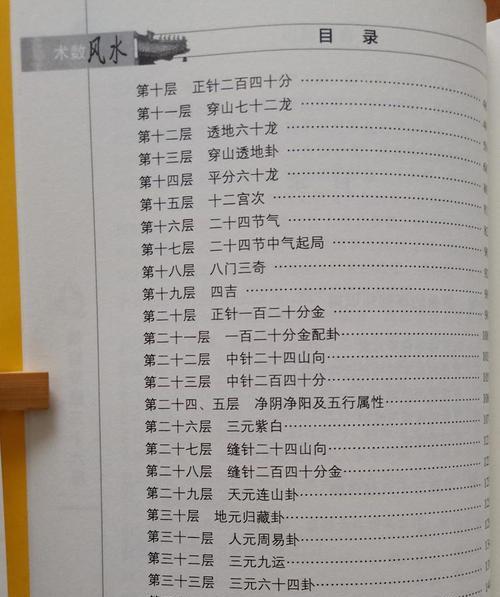 术数风水
目 录
第十层 正针二百四十分
第十一层 穿山七十二龙
第十二层 透地六十龙
第十三层 穿山透地卦
第十四层 平分六十龙
第十五层 十二宫次
第十六层 二十四节气
第十七层 二十四节中气起局
第十八层 八门三奇
第十九层 四吉
第二十层 正针一百二十分金
第二十一层 一百二十分金配卦
第二十二层 中针二十四山向
第二十三层 中针二百四十分
第二十四、五层 净阴净阳及五行属性
第二十六层 三元紫白
第二十七层 缝针二十四山向
第二十八层 缝针二百四十分金
第二十九层 天元连山卦
第三十层 地元归藏卦
第三十一层 人元周易卦
第三十二层 三元九运
第三十三层 三元六十四卦